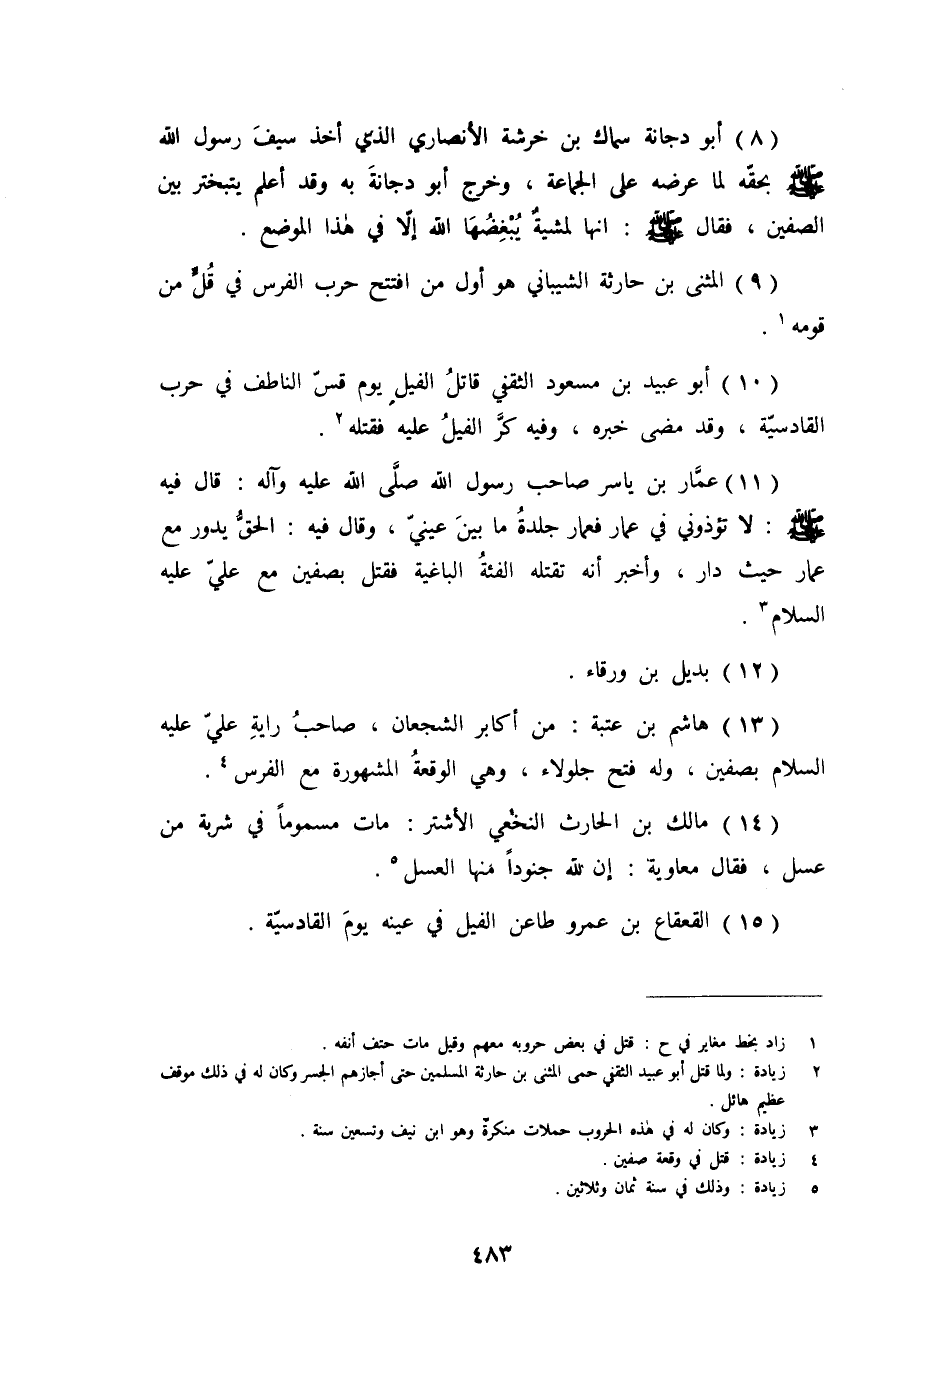 ( ٨ ) أبو دجانة سماك بن خرشة الأنصاري الذي أخذ سيفَ رسول الله
ﷺ بحقّه لما عرضه على الجماعة ، وخرج أبو دجانةَ به وقد أعلم يتبختر بين
الصفين ، فقال ﷺ : انها لمشيةٌ يُبْغِضُهَا الله إلّا في هٰذا الموضع .
( ٩ ) المثنى بن حارثة الشيباني هو أول من افتتح حرب الفرس في قُلٍّ من
قومه ١ .
( ١٠ ) أبو عبيد بن مسعود الثقفي قاتلُ الفيل يوم قسّ الناطف في حرب
القادسيّة ، وقد مضى خبره ، وفيه كرَّ الفيلُ عليه فقتله ٢ .
( ١١ ) عمَّار بن ياسر صاحب رسول الله صلَّى الله عليه وآله : قال فيه
ﷺ : لا تؤذوني في عمار فعمار جلدةُ ما بينَ عينيّ ، وقال فيه : الحقُّ يدور مع
عمار حيث دار ، وأخبر أنه تقتله الفئةُ الباغية فقتل بصفين مع عليّ عليه
السلام ٣ .
( ١٢ ) بديل بن ورقاء .
( ١٣ ) هاشم بن عتبة : من أكابر الشجعان ، صاحبُ رايةِ عليّ عليه
السلام بصفين ، وله فتح جلولاء ، وهي الوقعةُ المشهورة مع الفرس ٤ .
( ١٤ ) مالك بن الحارث النخْعي الأشتر : مات مسموماً في شربة من
عسل ، فقال معاوية : إن لله جنوداً منها العسل ٥ .
( ١٥ ) القعقاع بن عمرو طاعن الفيل في عينه يومَ القادسيّة .
١ زاد بخط مغاير في ح : قتل في بعض حروبه معهم وقيل مات حتف أنفه .
٢ زيادة : ولما قتل أبو عبيد الثقفي حمى المثنى بن حارثة المسلمين حتى أجازهم الجسر وكان له في ذلك موقف
عظيم هائل .
٣ زيادة : وكان له في هٰذه الحروب حملات منكرةّ وهو ابن نيف وتسعين سنة .
٤ زيادة : قتل في وقعة صفين .
٥ زيادة : وذلك في سنة ثمان وثلاثين .
٤٨٣